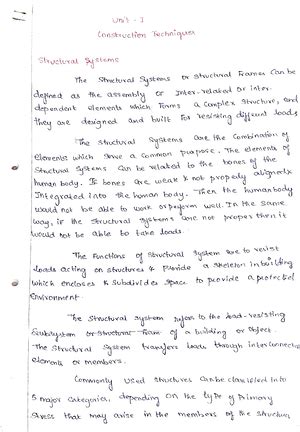 Unit - I
Construction Techniques
Structural Systems
The Structural Systems or Structural Frames can be
defined as the assembly or Inter-related or inter-
dependent elements which forms a complex structure, and
they are designed and built for resisting different loads
The Structural Systems are the Combination of
Elements which serve a common purpose. The elements of
Structural Systems can be related to the bones of the
human body. If bones are weak & not properly aligned &
Integrated into the human body. Then the human body
would not be able to work or perform well. In the same
way, if the Structural systems are not proper then it
would not be able to take loads.
The Functions of Structural System are to resist
Loads acting on structures & Provide a skeleton in building
which encloses & Subdivides space to provide a protected
Environment.
The Structural system refers to the load-resisting
Subsystem or Structural Frame of a building or object.
The Structural System transfers loads through interconnected
elements or members.
Commonly used structures can be classified into
5 major categories, depending on the type of primary
Stress that may arise in the members of the structures